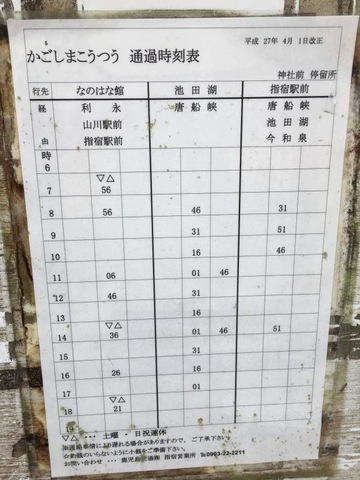 かごしまこうつう 通過時刻表
平成 27年 4月 1日改正
神社前 停留所
行先 なのはな館 池田湖 指宿駅前
経 利 永 唐船峡 唐船峡
山川駅前 池田湖
由 指宿駅前 今和泉
時
6
▽△
7 56
8 56 46 31
9 31 51
10 16 46
11 06 01 46
12 46 31
13 16
▽△
14 36 01 46 51
15 31
16 26 16
17 01
▽△
18 21
▽△ ・・・ 土曜 ・ 日祝運休
より遅れる場合がありますので、ご了承下さい。
☆釣銭のいらないように小銭をご準備下さい。
お問い合わせ・・・鹿児島 通㈱ 指宿営業所 ℡0993-22-2211